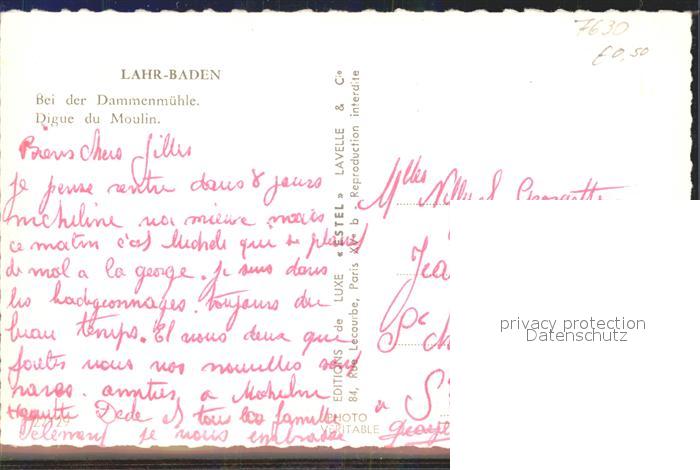 7630
€0,50
LAHR-BADEN
Bei der Dammenmühle.
Digue du Moulin.
Biens chers filles
je pense rentre dans 8 jours
micheline va mieux mais
ce matin c'est Michele que se plains
de mal a la gorge. je suis dans
les badigeonnages. toujours du
beau temps. Et vous deux que
faites vous vos nouvelles son
rares. amities a
Dede et tous la famille
je vous embrasse
EDITIONS de LUXE «ESTEL» LAVELLE & Cie
84, Rue Lecourbe, Paris XVe b. Reproduction interdite
PHOTO
VERITABLE
Mlles
Jea
à S
privacy protection
Datenschutz